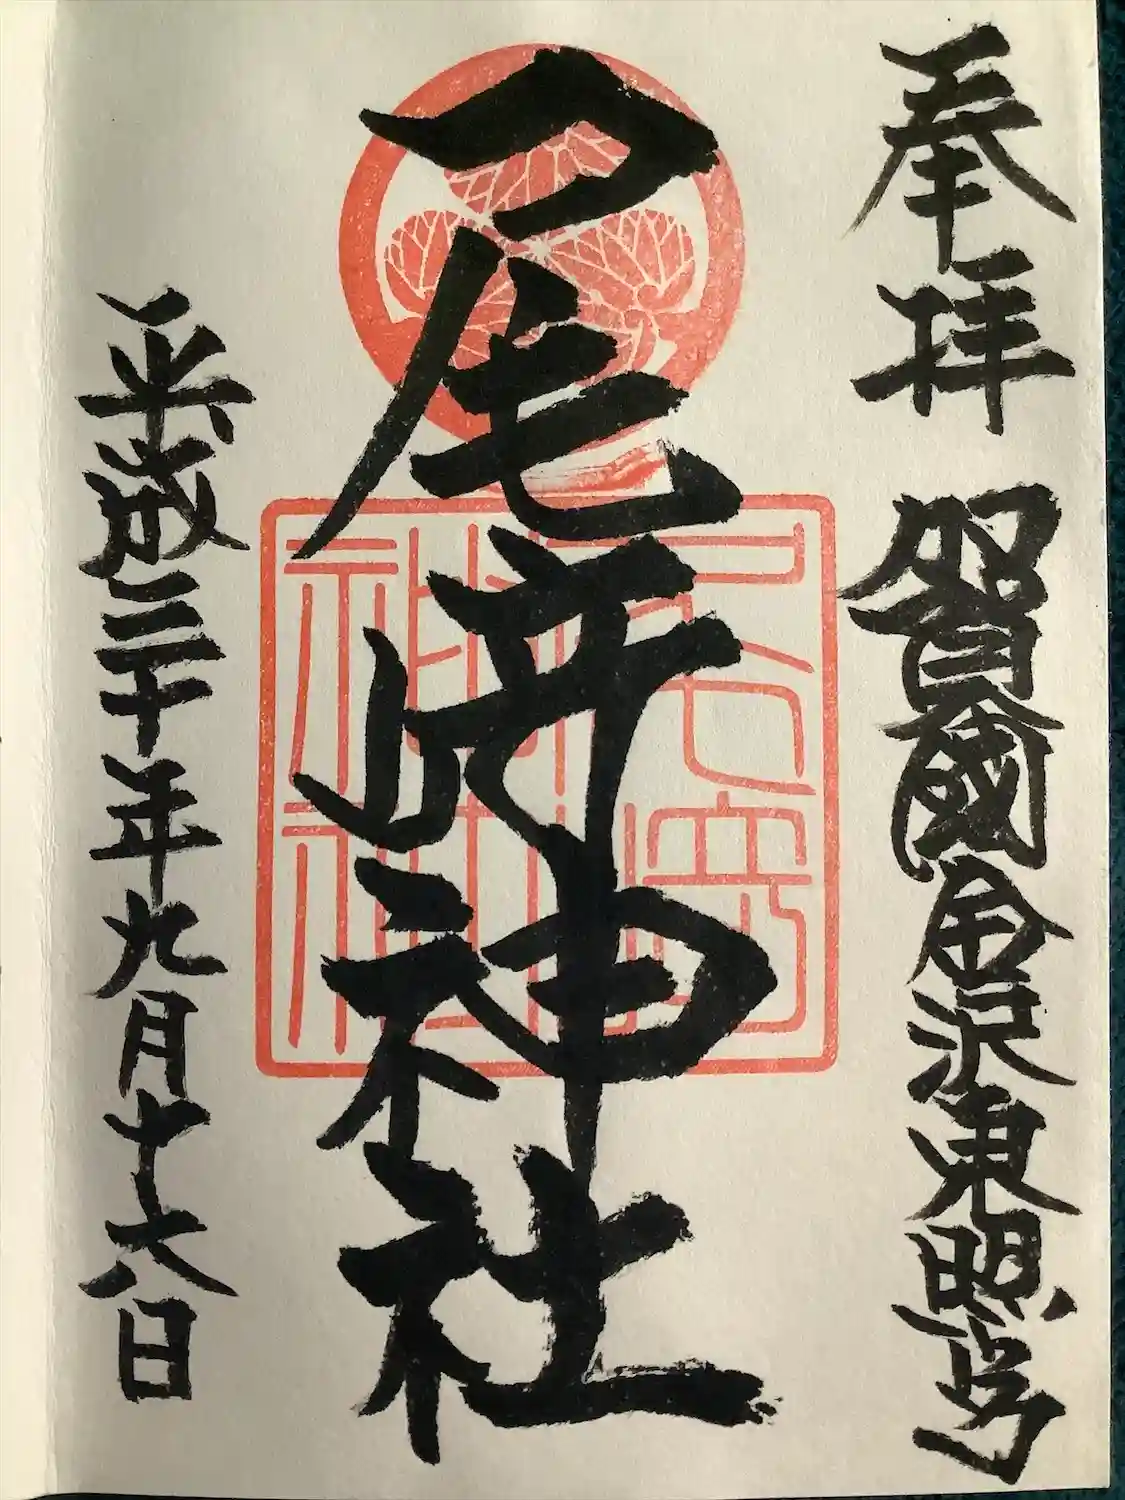 奉拝
賀國金沢東照宮
尾崎神社
尾崎
神社
平成三十年九月十六日